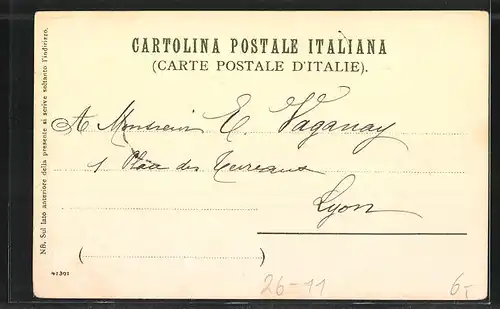 CARTOLINA POSTALE ITALIANA
(CARTE POSTALE D'ITALIE).
A Monsieur E. Vaganay
1 Place des Terreaux
Lyon
( )
NB. Sul lato anteriore della presente si scrive soltanto l'indirizzo.
41391
26-11
6,-